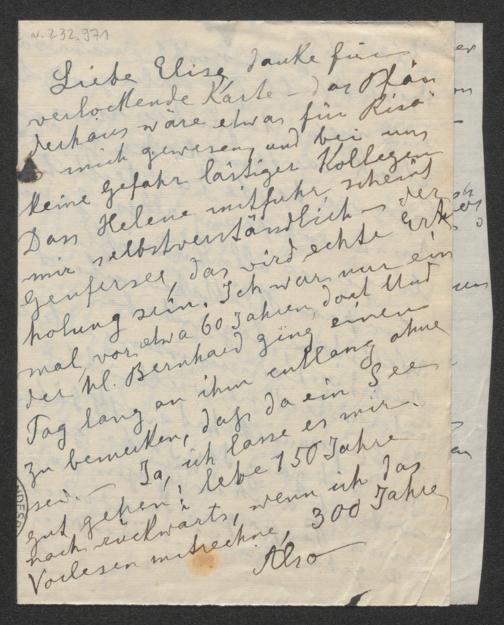 N. 232.971
Liebe Elise, danke für
verlockende Karte – das Pfän
derhaus wäre etwas für Risa
mich gewesen, und bei uns
keine Gefahr lästiger Kollegen
Dass Helene mitfuhr scheint
mir selbstverständlich – der
Genfersee, das wird echte Er
holung sein. Ich war nur ein
mal, vor etwa 60 Jahren dort. Und
der hl. Bernhard ging einen
Tag lang an ihm entlang ohne
zu bemerken, dass da ein See
sei. – Ja, ich lasse es mir
gut gehen; lebe 150 Jahre
nach rückwärts, wenn ich das
Vorlesen mitrechne, 300 Jahre
Also